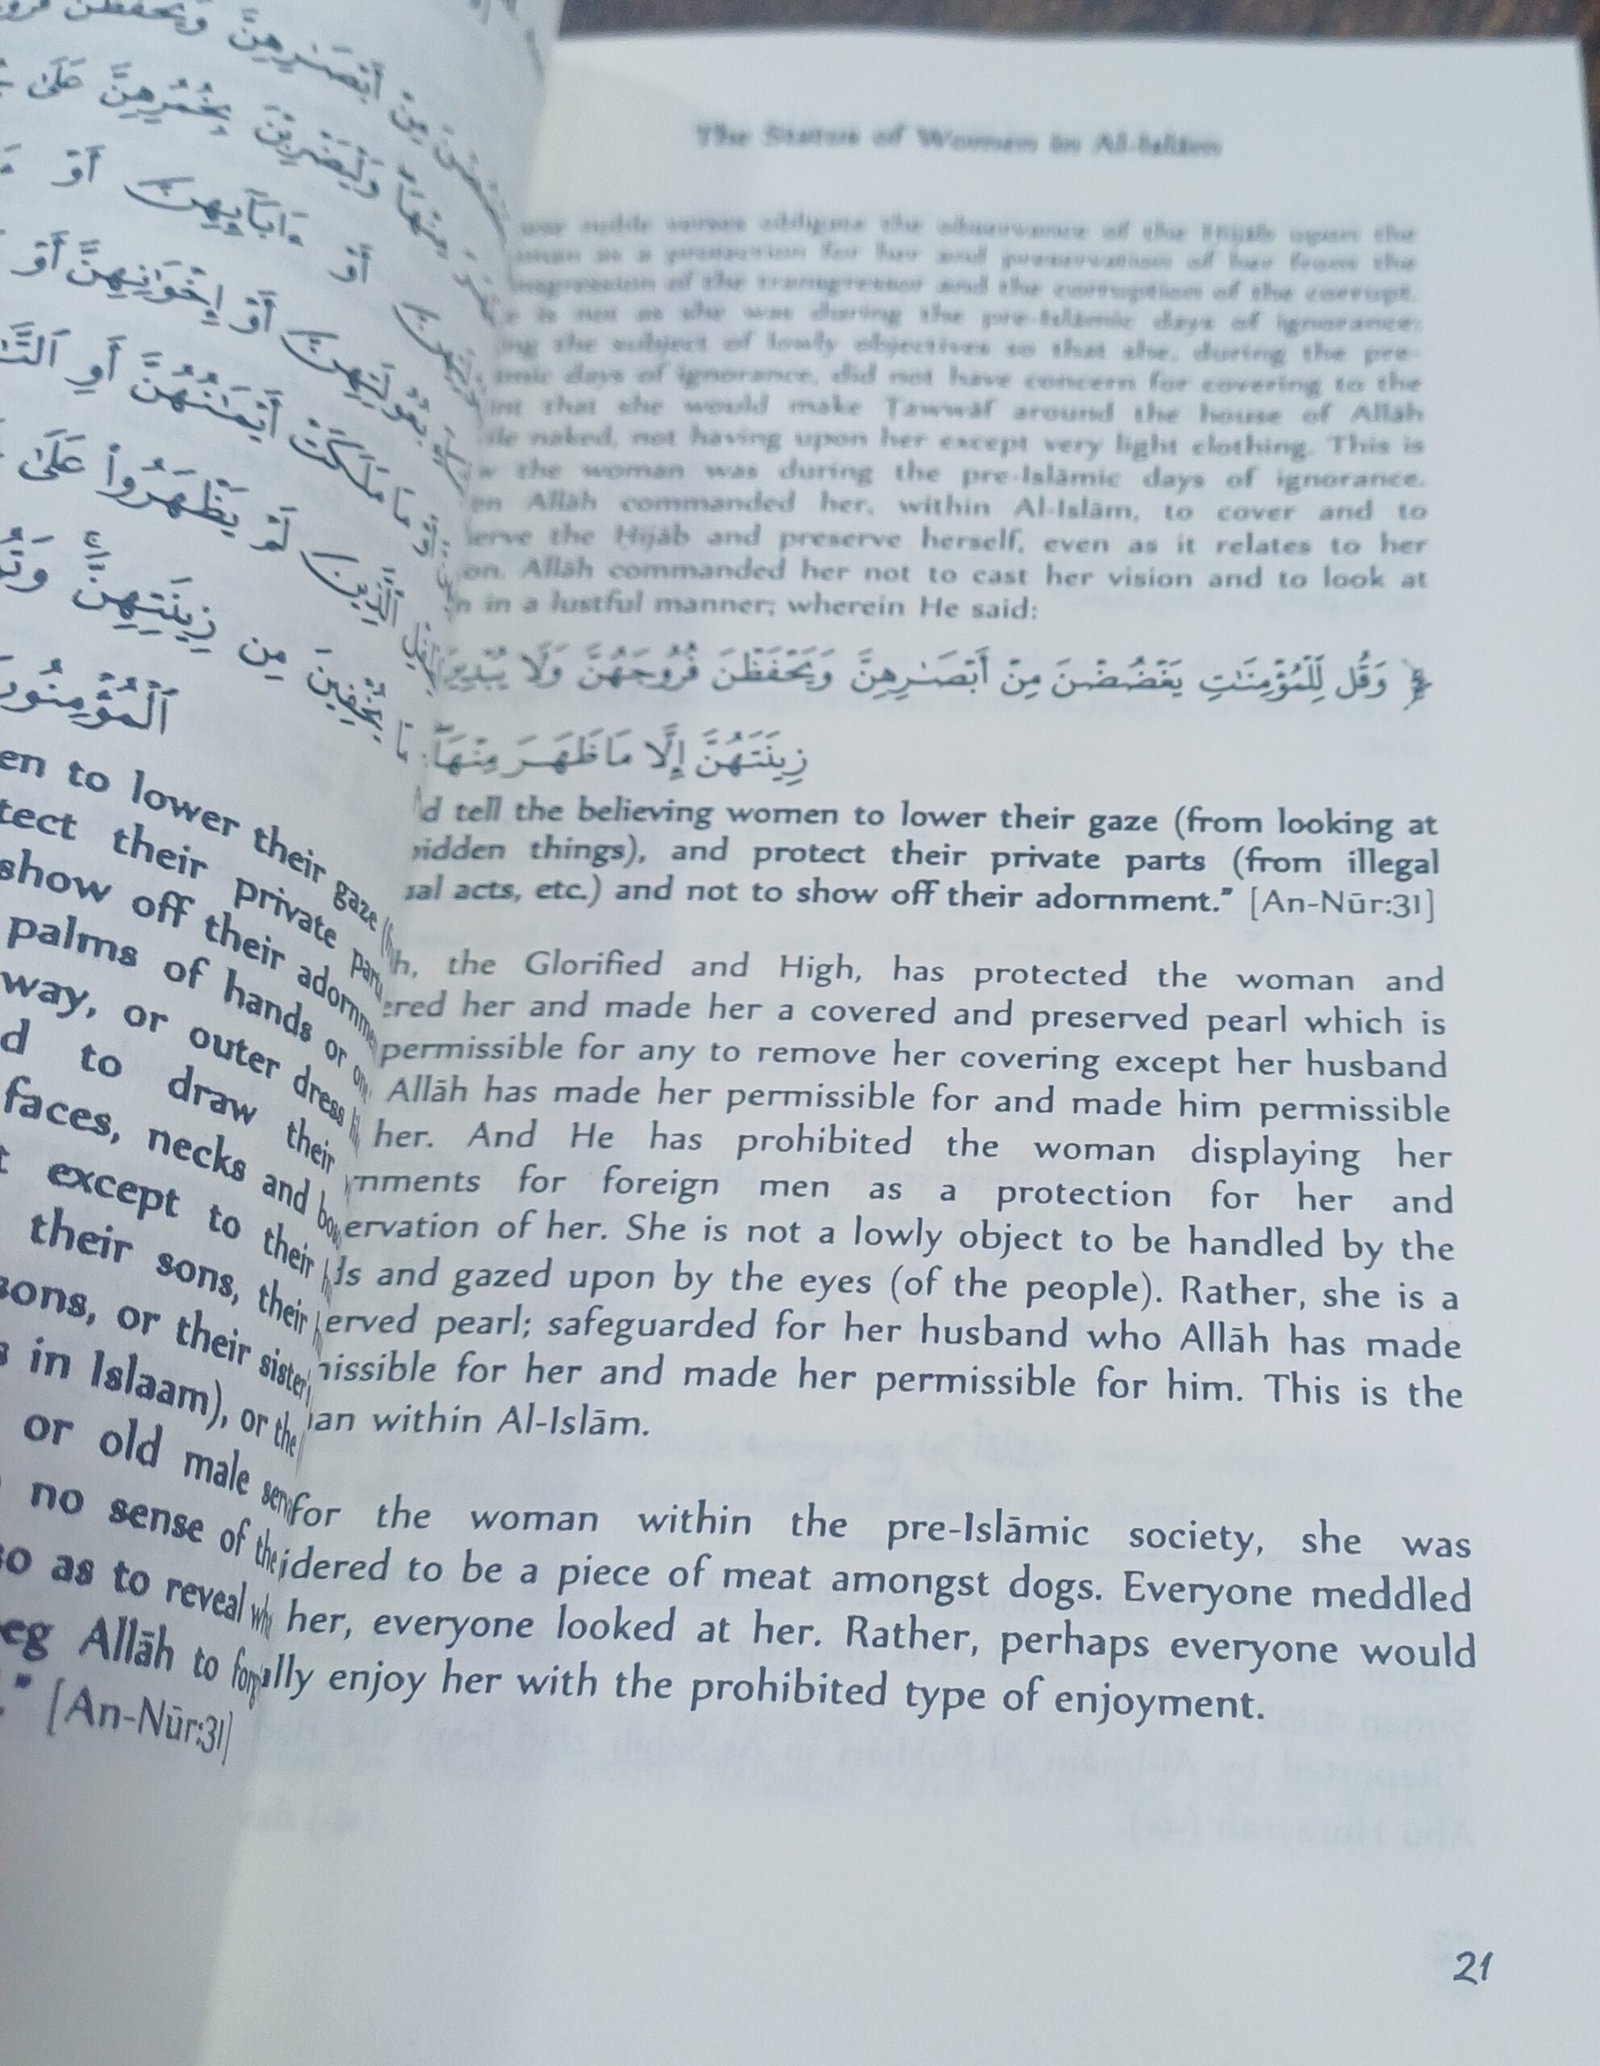 أَبْصَٰرِهِنَّ وَيَحْفَظْنَ
وَلْيَضْرِبْنَ بِخُمُرِهِنَّ عَلَىٰ
أَوْ ءَابَآئِهِنَّ أَوْ
أَوْ إِخْوَٰنِهِنَّ أَوْ
أَوْ مَا مَلَكَتْ أَيْمَٰنُهُنَّ أَوِ
ٱلَّذِينَ لَمْ يَظْهَرُوا۟ عَلَىٰ
مَا يُخْفِينَ مِن زِينَتِهِنَّ
en to lower their gaze
tect their private
show off their
palms of hands or
way, or outer dress
d to draw their
faces, necks and
except to their
their sons, their
sons, or their
s in Islaam), or the
or old male
no sense of
so as to reveal
eg Allāh to
." [An-Nūr:31]
The Status of Women in Al-Islām
noble verses obligate the observance of the Hijāb upon the
as a protection for her and preservation of her from the
of the transgressor and the corruption of the corrupt.
is not as she was during the pre-Islāmic days of ignorance;
ing the subject of lowly objectives so that she, during the pre-
mic days of ignorance, did not have concern for covering to the
int that she would make Tawwāf around the house of Allāh
ile naked, not having upon her except very light clothing. This is
w the woman was during the pre-Islāmic days of ignorance.
en Allāh commanded her, within Al-Islām, to cover and to
serve the Hijāb and preserve herself, even as it relates to her
on. Allāh commanded her not to cast her vision and to look at
n in a lustful manner; wherein He said:
﴿ وَقُل لِّلْمُؤْمِنَٰتِ يَغْضُضْنَ مِنْ أَبْصَٰرِهِنَّ وَيَحْفَظْنَ فُرُوجَهُنَّ وَلَا يُبْدِينَ
زِينَتَهُنَّ إِلَّا مَا ظَهَرَ مِنْهَا
d tell the believing women to lower their gaze (from looking at
bidden things), and protect their private parts (from illegal
ual acts, etc.) and not to show off their adornment." [An-Nūr:31]
h, the Glorified and High, has protected the woman and
ered her and made her a covered and preserved pearl which is
permissible for any to remove her covering except her husband
Allāh has made her permissible for and made him permissible
her. And He has prohibited the woman displaying her
rnments for foreign men as a protection for her and
ervation of her. She is not a lowly object to be handled by the
ds and gazed upon by the eyes (of the people). Rather, she is a
erved pearl; safeguarded for her husband who Allāh has made
missible for her and made her permissible for him. This is the
an within Al-Islām.
for the woman within the pre-Islāmic society, she was
idered to be a piece of meat amongst dogs. Everyone meddled
her, everyone looked at her. Rather, perhaps everyone would
ally enjoy her with the prohibited type of enjoyment.
21